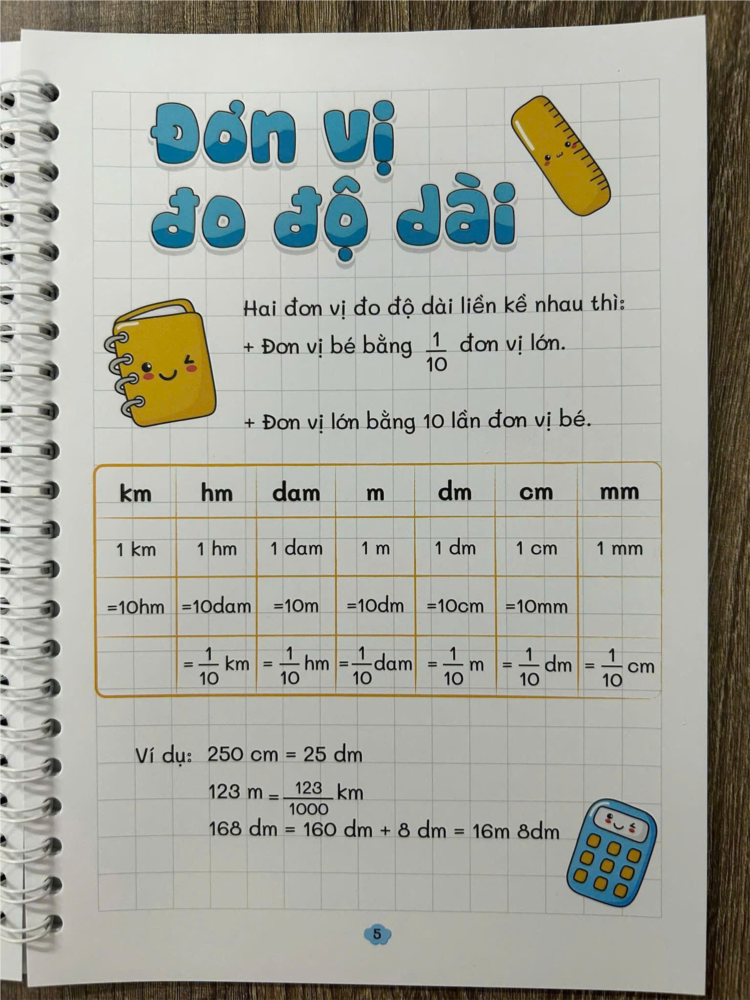 Đơn vị
đo độ dài
Hai đơn vị đo độ dài liền kề nhau thì:
+ Đơn vị bé bằng 1/10 đơn vị lớn.
+ Đơn vị lớn bằng 10 lần đơn vị bé.
km hm dam m dm cm mm
1 km 1 hm 1 dam 1 m 1 dm 1 cm 1 mm
=10hm =10dam =10m =10dm =10cm =10mm
= 1/10 km = 1/10 hm = 1/10 dam = 1/10 m = 1/10 dm = 1/10 cm
Ví dụ: 250 cm = 25 dm
123 m = 123/1000 km
168 dm = 160 dm + 8 dm = 16m 8dm
5